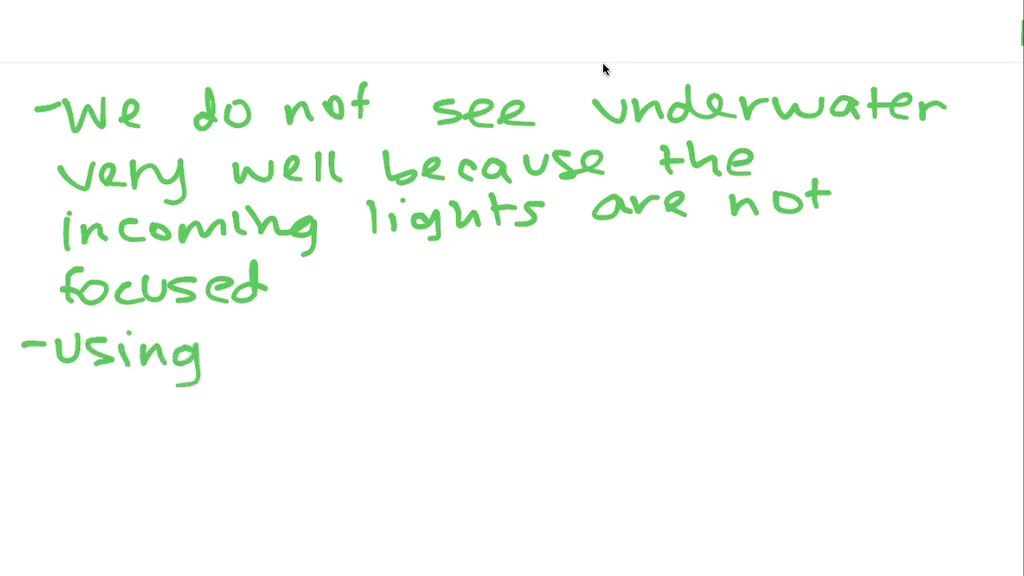 -We do not see underwater
very well because the
incoming lights are not
focused
-using